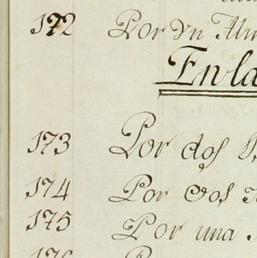 172 Por Vn
En la
173 Por dos
174 Por dos
175 Por una